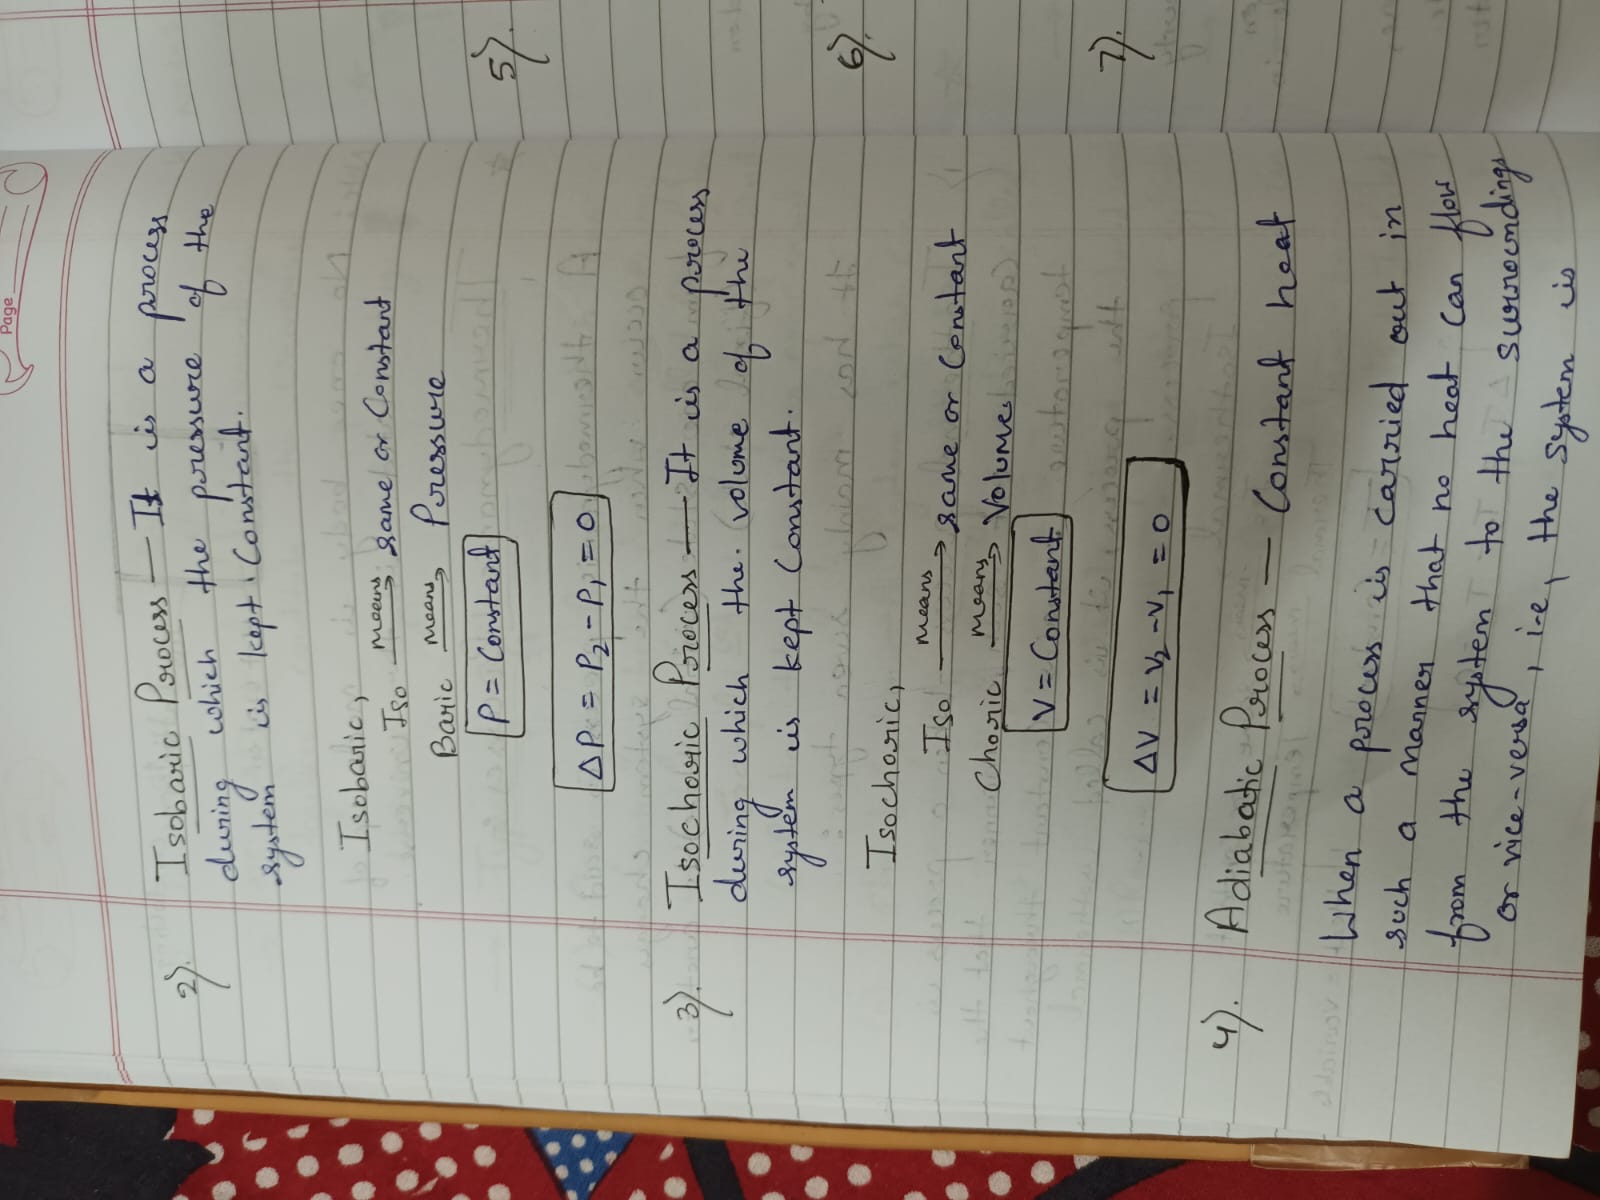 Page
2).
Isobaric Process — It is a process
during which the pressure of the
system is kept Constant.
Isobaric,
Iso means → same or Constant
Baric means → Pressure
P = Constant
ΔP = P₂ - P₁ = 0
3).
Isochoric Process — It is a process
during which the volume of the
system is kept Constant.
Isochoric,
Iso means → same or Constant
Choric means → Volume
V = Constant
ΔV = V₂ - V₁ = 0
4).
Adiabatic Process — Constant heat
When a process is carried out in
such a manner that no heat can flow
from the system to the surroundings
or vice-versa, i.e, the system is
5).
6).
7).